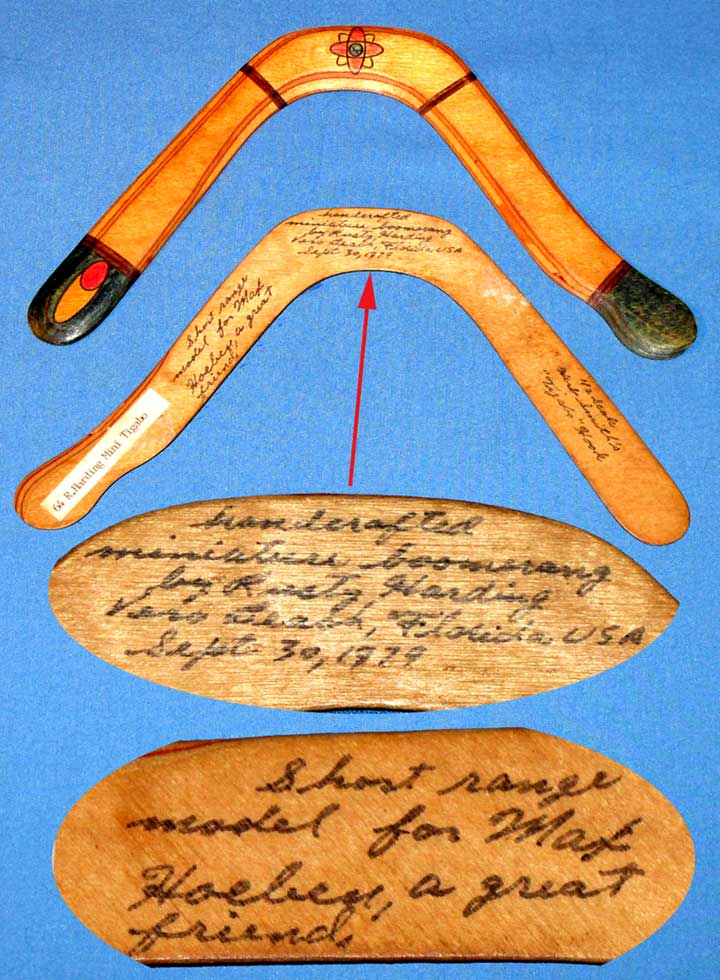 handcrafted
miniature boomerang
by Rusty Harding
Vero Beach, Florida USA
Sept 30, 1979
Short range
model for Max
Hoeben, a great
friend,
64 R.Harding Mini Tigabo
1/2 Scale
Herb Smith's
Hook
handcrafted
miniature boomerang
by Rusty Harding
Vero Beach, Florida USA
Sept 30, 1979
Short range
model for Max
Hoeben, a great
friend,